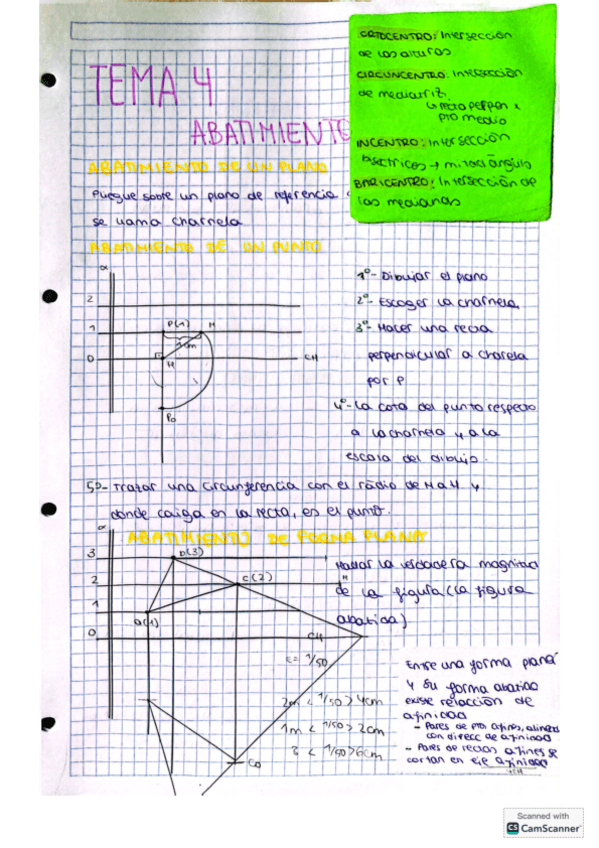 ORTOCENTRO: Intersección
de las alturas
CIRCUNCENTRO: Intersección
de mediatriz.
↳ recta perpen x
pto medio
INCENTRO: Intersección
bisectrices → mitad ángulo
BARICENTRO: Intersección de
las medianas
TEMA 4
ABATIMIENTO
ABATIMIENTO DE UN PLANO
Pliegue sobre un plano de referencia
se llama charnela
ABATIMIENTO DE UN PUNTO
α
2
1
0
P(1)
M
1cm
H
CH
P₀
1º- Dibujar el plano
2º- Escoger la charnela
3º- Hacer una recta
perpendicular a charela
por P
4º- La cota del punto respecto
a la charnela y a la
escala del dibujo.
5º- Trazar una circunferencia con el radio de H a M y
donde caiga en la recta, es el punto.
ABATIMIENTO DE FORMA PLANA
α
3
2
1
0
b(3)
c(2)
a(1)
CH
C₀
Hallar la verdadera magnitud
de la figura (la figura
abatida)
E= 1/50
2m < 1/50 > 4cm
1m < 1/50 > 2cm
3 < 1/50 > 6cm
Entre una forma plana
y su forma abatida
existe relacción de
afinidad
- Pares de pto afines, alinead
con direcc de afinidad
- Pares de rectas afines se
cortan en eje afinidad
Scanned with
CS CamScanner